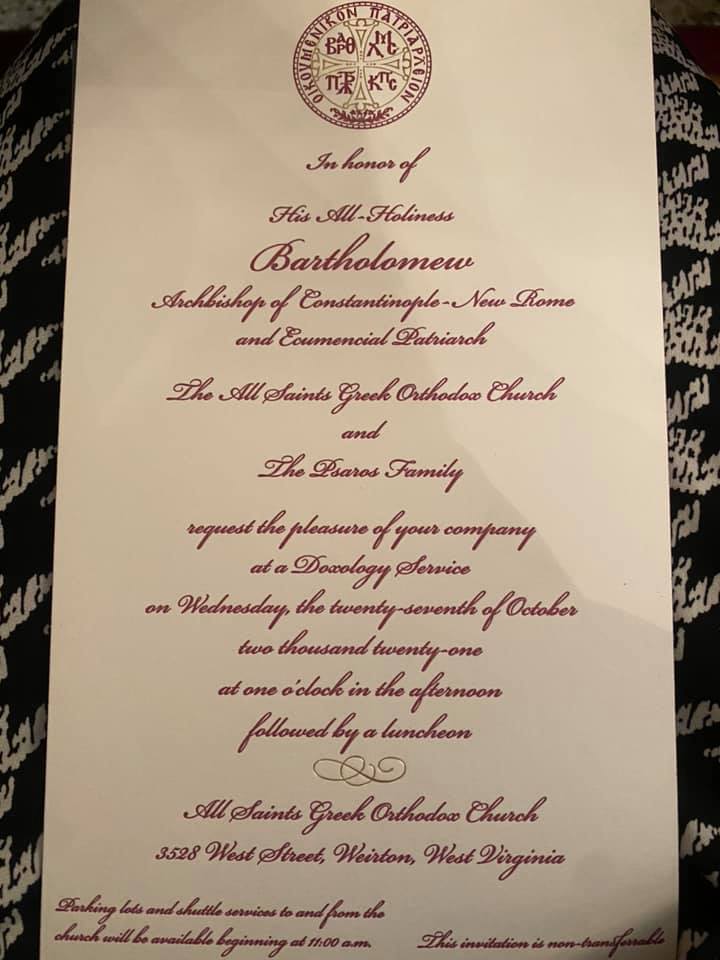 ΟΙΚΟΥΜΕΝΙΚΟΝ ΠΑΤΡΙΑΡΧΕΙΟΝ
In honor of
His All-Holiness
Bartholomew
Archbishop of Constantinople-New Rome
and Ecumencial Patriarch
The All Saints Greek Orthodox Church
and
The Psaros Family
request the pleasure of your company
at a Doxology Service
on Wednesday, the twenty-seventh of October
two thousand twenty-one
at one o'clock in the afternoon
followed by a luncheon
All Saints Greek Orthodox Church
3528 West Street, Weirton, West Virginia
Parking lots and shuttle services to and from the
church will be available beginning at 11:00 a.m.
This invitation is non-transferrable